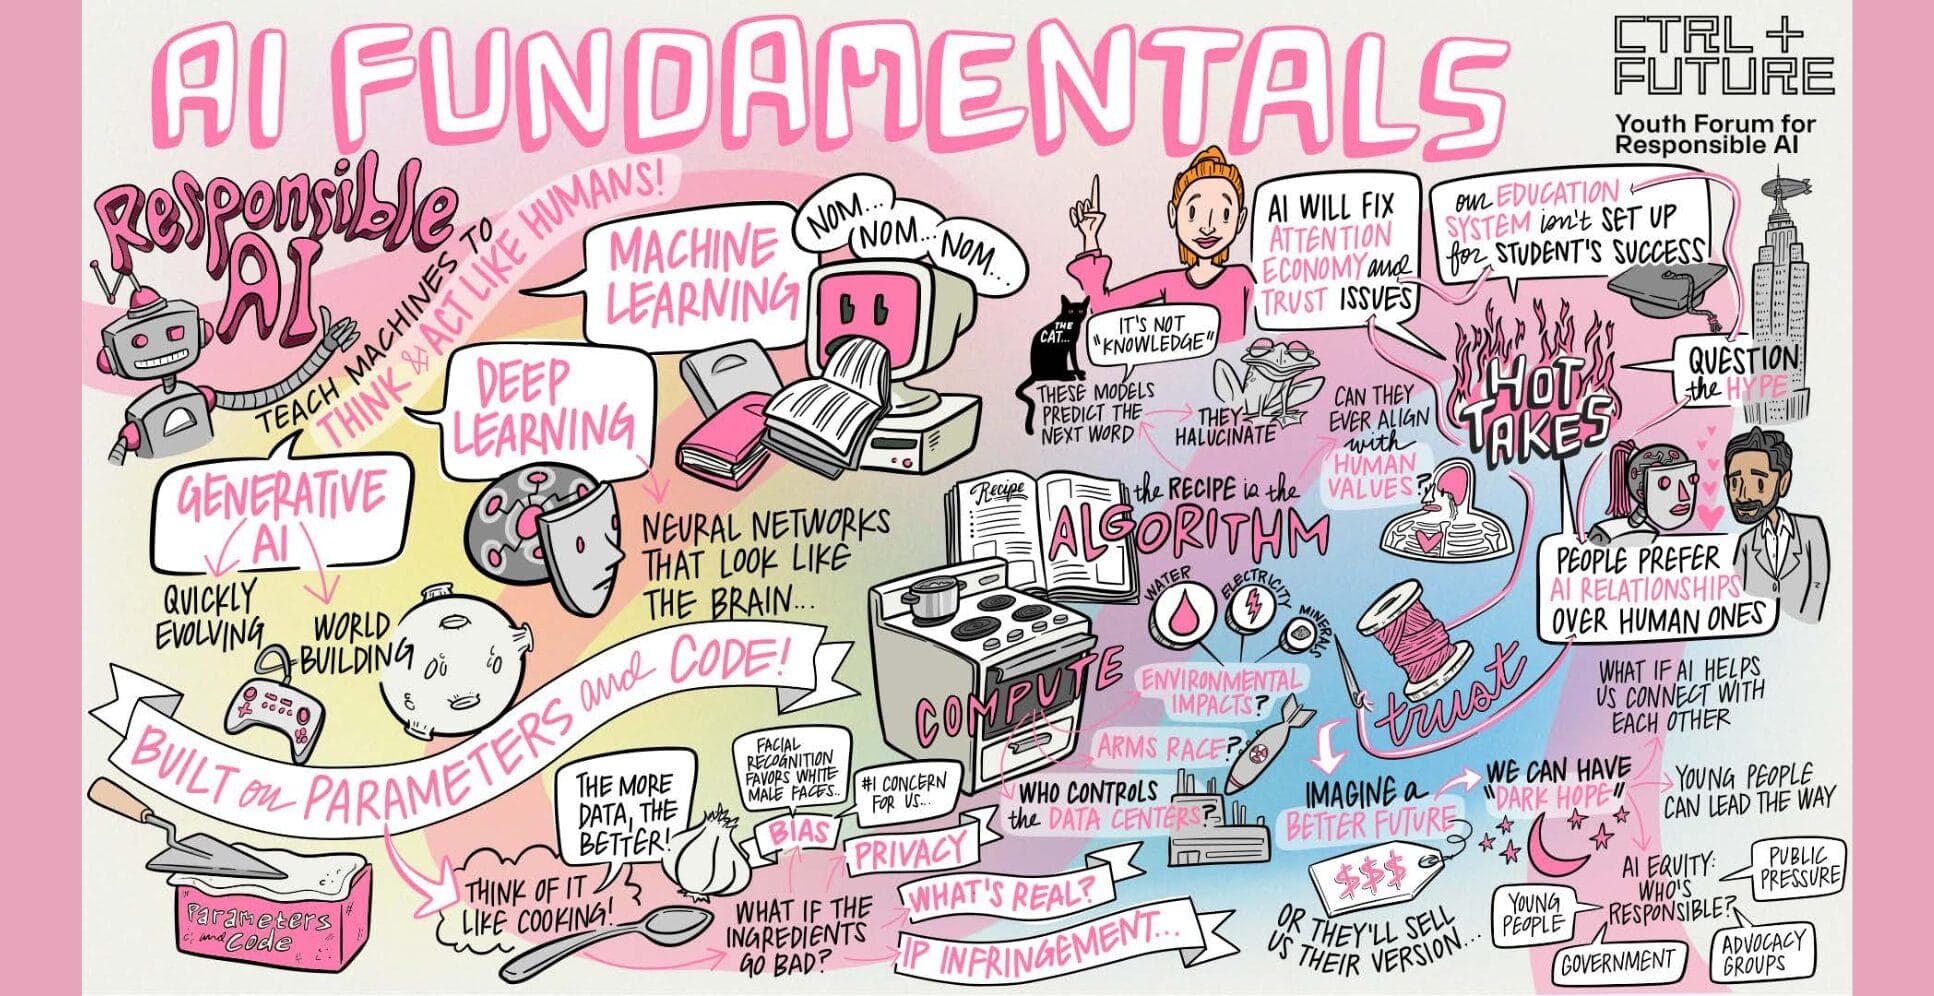 AI FUNDAMENTALS
CTRL +
FUTURE
Youth Forum for
Responsible AI
Responsible
AI
TEACH MACHINES TO
THINK & ACT LIKE HUMANS!
MACHINE
LEARNING
NOM...
NOM...
NOM...
DEEP
LEARNING
NEURAL NETWORKS
THAT LOOK LIKE
THE BRAIN...
GENERATIVE
AI
QUICKLY
EVOLVING
WORLD
BUILDING
BUILT on PARAMETERS and CODE!
Parameters
and Code
THINK OF IT
LIKE COOKING!
THE MORE
DATA, THE
BETTER!
WHAT IF THE
INGREDIENTS
GO BAD?
BIAS
FACIAL
RECOGNITION
FAVORS WHITE
MALE FACES..
PRIVACY
#1 CONCERN
FOR US...
WHAT'S REAL?
IP INFRINGEMENT...
THE
CAT...
IT'S NOT
"KNOWLEDGE"
THESE MODELS
PREDICT THE
NEXT WORD
THEY
HALUCINATE
CAN THEY
EVER ALIGN
with
HUMAN
VALUES?
Recipe
the RECIPE is the
ALGORITHM
COMPUTE
WATER
ELECTRICITY
MINERALS
ENVIRONMENTAL
IMPACTS?
ARMS RACE?
WHO CONTROLS
the DATA CENTERS?
AI WILL FIX
ATTENTION
ECONOMY and
TRUST ISSUES
our EDUCATION
SYSTEM isn't SET UP
for STUDENT'S SUCCESS
HOT
TAKES
QUESTION
the HYPE
PEOPLE PREFER
AI RELATIONSHIPS
OVER HUMAN ONES
WHAT IF AI HELPS
US CONNECT WITH
EACH OTHER
trust
IMAGING a
BETTER FUTURE
$$$
OR THEY'LL SELL
US THEIR VERSION...
WE CAN HAVE
"DARK HOPE"
YOUNG PEOPLE
CAN LEAD THE WAY
AI EQUITY:
WHO'S
RESPONSIBLE?
PUBLIC
PRESSURE
YOUNG
PEOPLE
GOVERNMENT
ADVOCACY
GROUPS